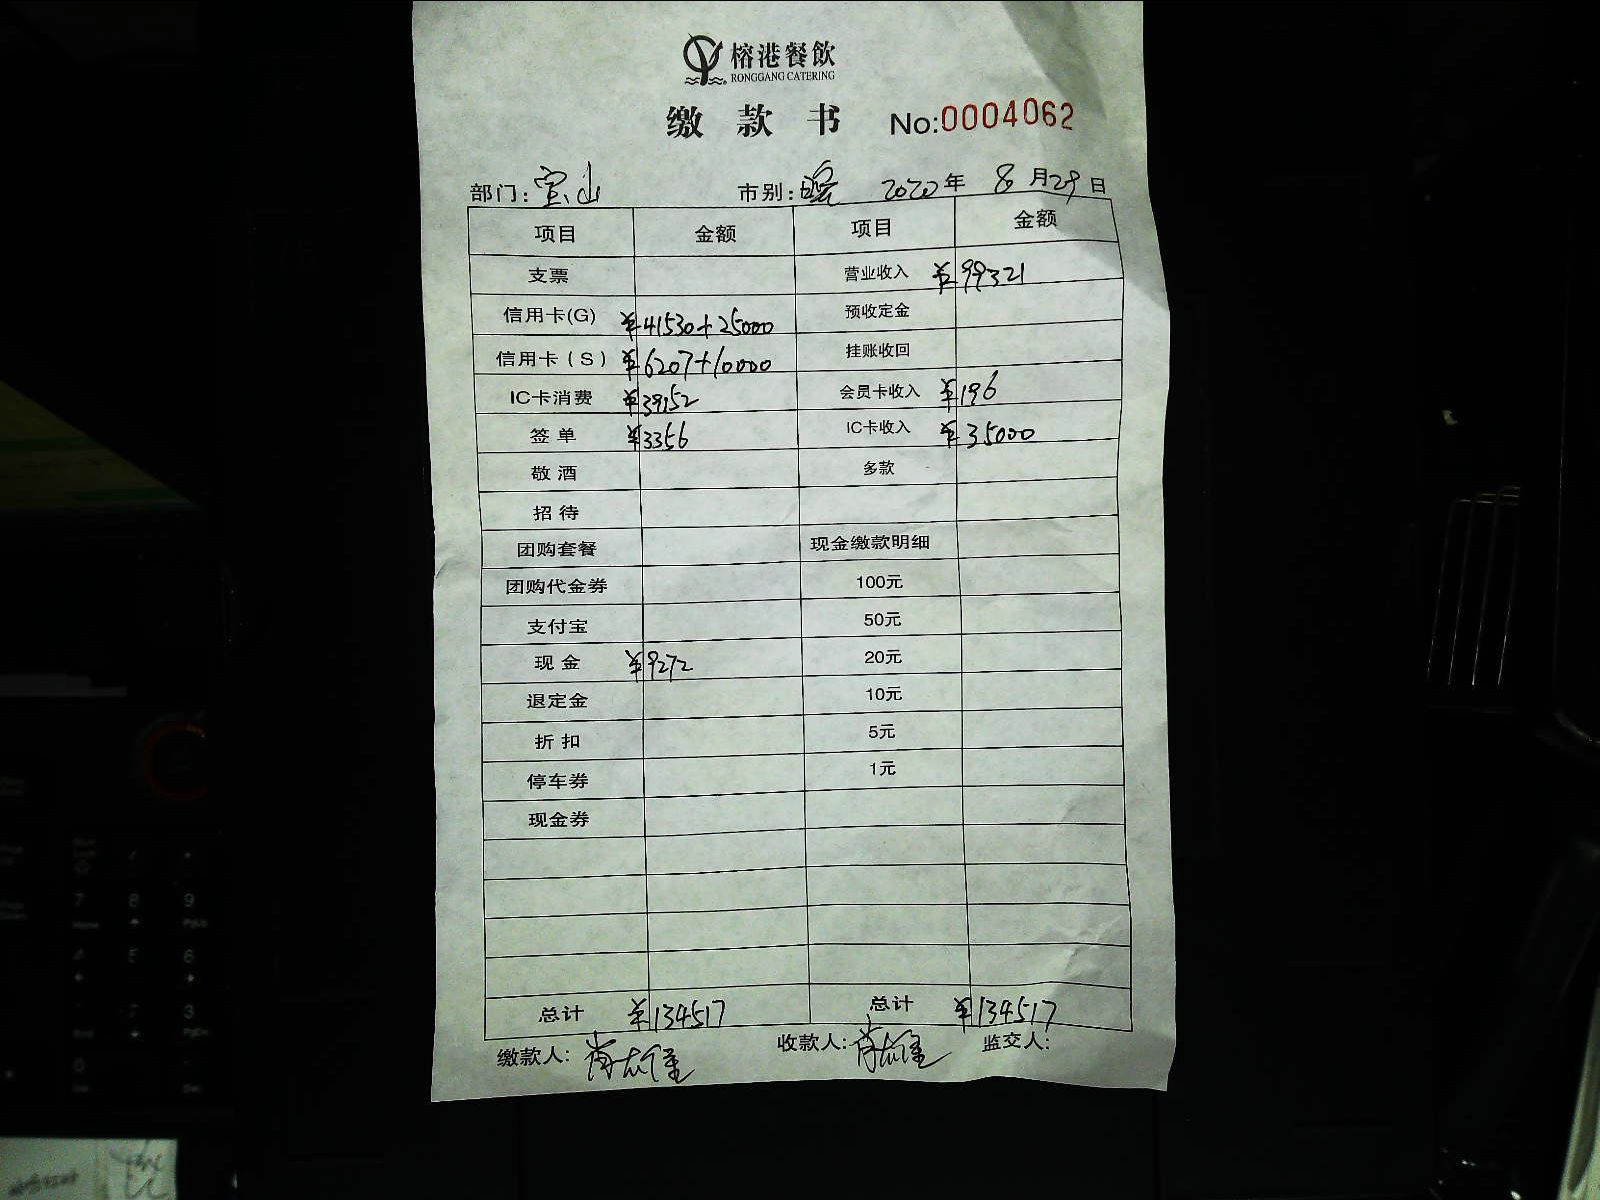 榕港餐飲
RONGGANG CATERING
缴 款 书 No:0004062
部门: 宝山 市别: 晚 2020年 8月29日
项目 金额 项目 金额
支票 营业收入 ¥99321
信用卡(G) ¥41530+25000 预收定金
信用卡(S) ¥6207+10000 挂账收回
IC卡消费 ¥39152 会员卡收入 ¥196
签单 ¥3356 IC卡收入 ¥35000
敬酒 多款
招待
团购套餐 现金缴款明细
团购代金券 100元
支付宝 50元
现金 ¥9272 20元
退定金 10元
折扣 5元
停车券 1元
现金券
总计 ¥134517 总计 ¥134517
缴款人: 收款人: 监交人: